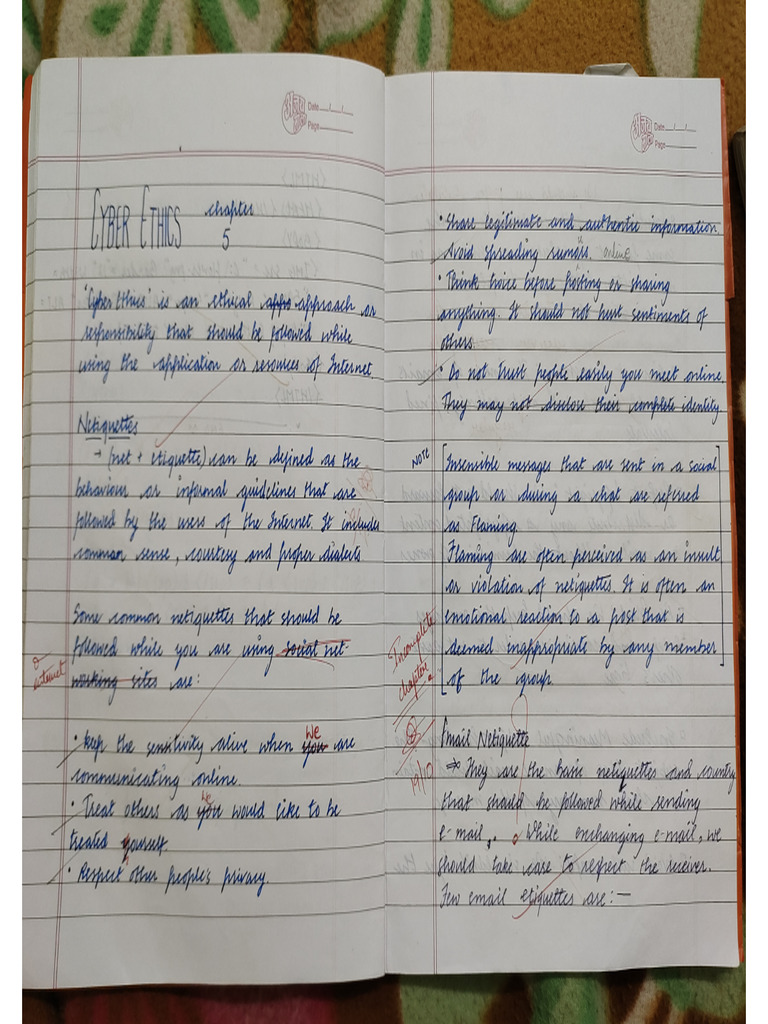 Date
Page
CYBER ETHICS chapter 5
'Cyber Ethics' is an ethical appo approach or
responsibility that should be followed while
using the application or resources of Internet.
Netiquettes
→ (net + etiquette) can be defined as the
behaviour or informal guidelines that are
followed by the users of the Internet. It includes
common sense, courtesy and proper dialects
Some common netiquettes that should be
followed while you are using social net-
internet
working sites are:
• keep the sensitivity alive when you We are
communicating online.
• Treat others as you we would like to be
treated yourself.
• Respect other people's privacy.
Date
Page
• Share legitimate and authentic information.
Avoid spreading rumors. online
• Think twice before posting or sharing
anything. It should not hurt sentiments of
others
• Do not trust people easily you meet online.
They may not disclose their complete identity.
NOTE
Insensible messages that are sent in a social
group or during a chat are referred
as Flaming.
Flaming are often perceived as an insult
or violation of netiquettes. It is often an
emotional reaction to a post that is
deemed inappropriate by any member
of the group.
Incomplete
chapter
19/10
Email Netiquette
⇒ They are the basic netiquettes and country
that should be followed while sending
e-mail. While exchanging e-mail, we
should take care to respect the receiver.
Few email etiquettes are:—